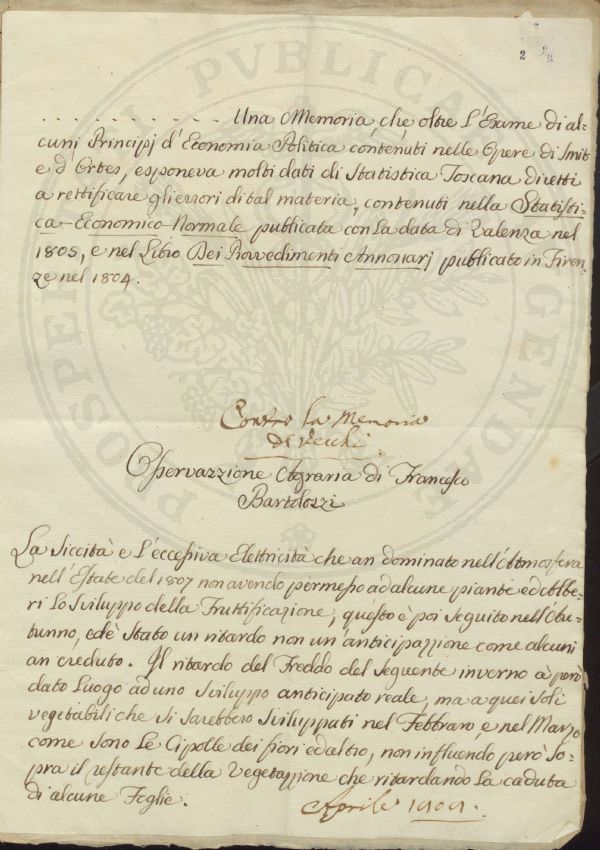 2
. . . . . . . . . . . Una Memoria, che oltre L'Esame di al-
cuni Principj d'Economia Politica contenuti nelle Opere di Smit
e d'Ortes, esponeva molti dati di Statistica Toscana diretti
a rettificare gli errori di tal materia, contenuti nella Statisti-
ca-Economico-Normale publicata con La data di Valenza nel
1805, e nel Libro Dei Provvedimenti Annonarj publicato in Firen-
ze nel 1804.
Contro la Memoria
de Vecchi
Osservazzione Agraria di Francesco
Bartolozzi
La Siccità e L'eccessiva Elettricità che an dominato nell'Atmosfera
nell'Estate del 1807 non avendo permesso ad alcune piante ed Albe-
ri Lo Sviluppo della Fruttificazione, questo è poi seguito nell'Au-
tunno, ed è stato un ritardo non un'anticipazzione come alcuni
an creduto. Il ritardo del Freddo del seguente inverno à però
dato Luogo ad uno Sviluppo anticipato reale, ma a quei soli
vegetabili che si sarebbero Sviluppati nel Febbraro e nel Marzo
come sono Le Cipolle dei fiori ed altro, non influendo però So-
pra il restante della Vegetazzione che ritardando La caduta
di alcune Foglie.
Aprile
PROSPERITATI PUBLICAE AUGENDAE